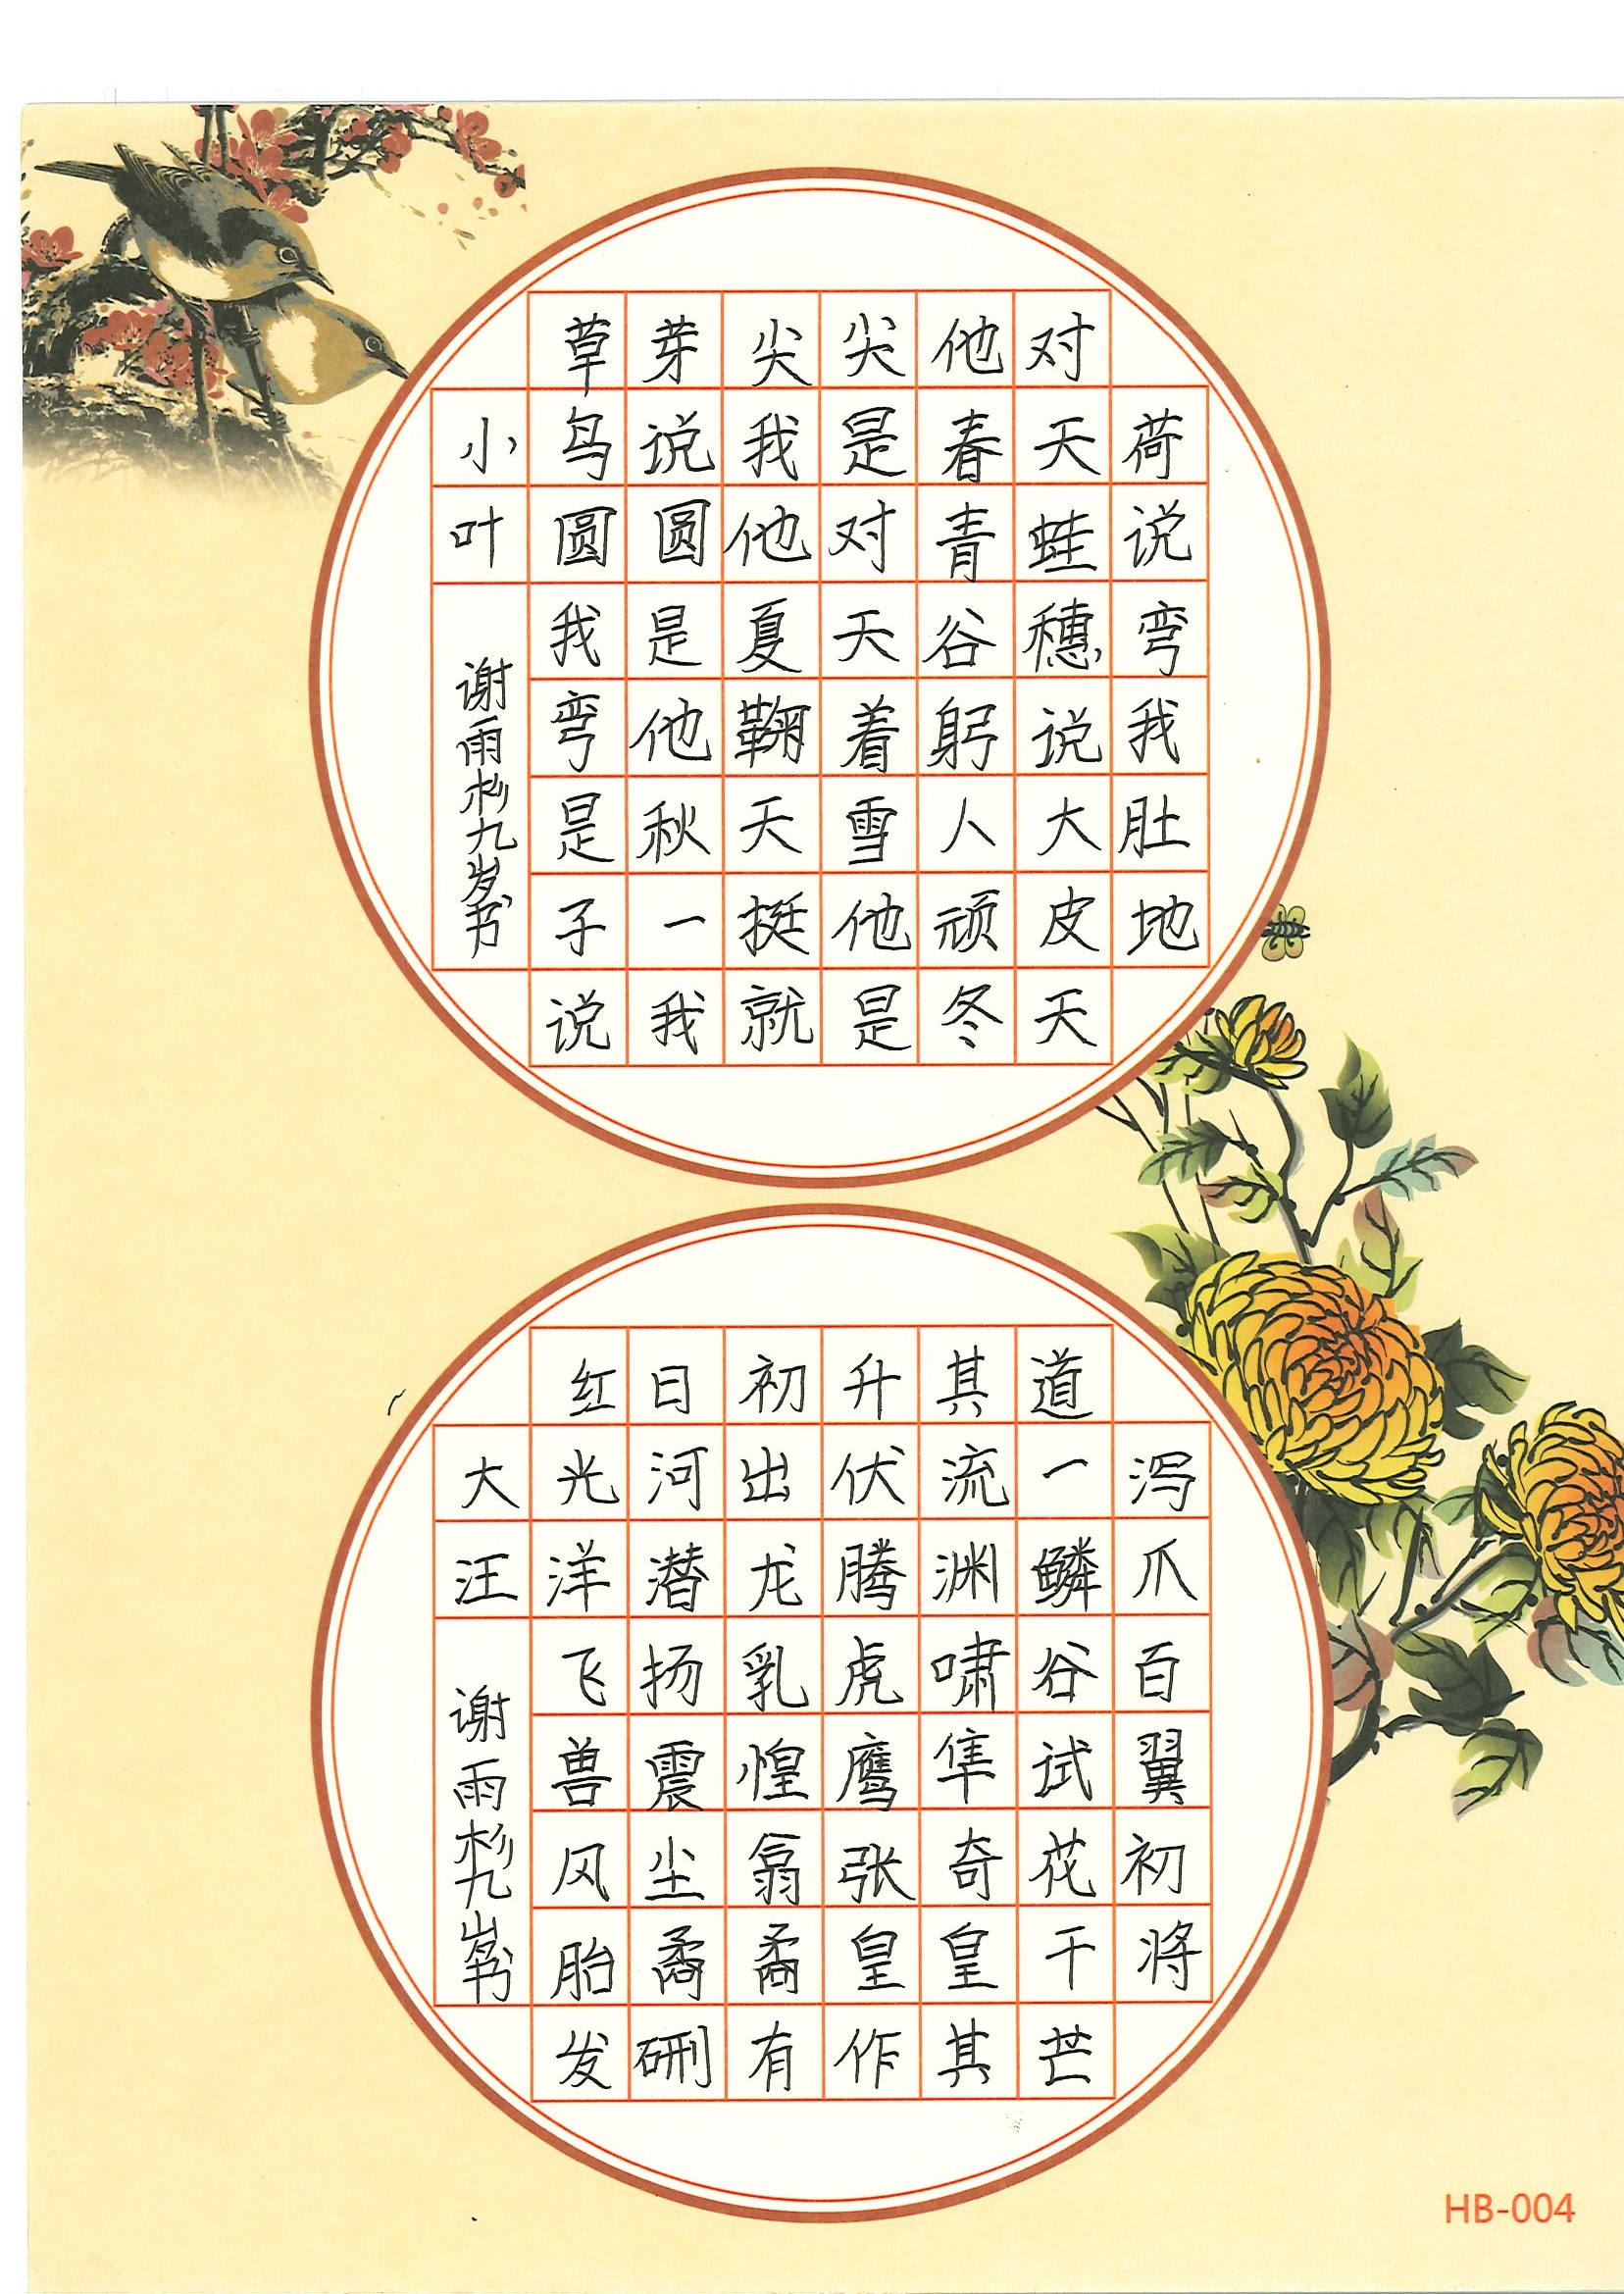 草芽尖尖他对
小鸟说我是春天荷
叶圆圆他对青蛙说
我是夏天谷穗弯
弯他鞠着躬说我
是秋天雪人大肚
子一挺他顽皮地
说我就是冬天
谢雨杉九岁书
红日初升其道
大光河出伏流一泻
汪洋潜龙腾渊鳞爪
飞扬乳虎啸谷百
兽震惶鹰隼试翼
风尘翕张奇花初
胎矞矞皇皇干将
发硎有作其芒
谢雨杉九岁书
HB-004